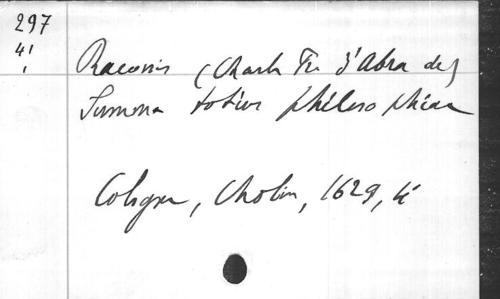 297
4!
Raconis (Charles Fr. d'Abra de)
Summa totius philosophiae
Cologne, Cholin, 1629, 4°